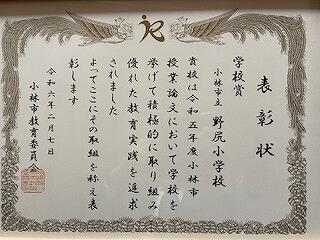 表彰状
学校賞
小林市立 野尻小学校
貴校は令和五年度小林市
授業論文において学校を
挙げて積極的に取り組み
優れた教育実践を追求
されました
よってここにその取組を称え表
彰します
令和六年二月七日
小林市教育委員会